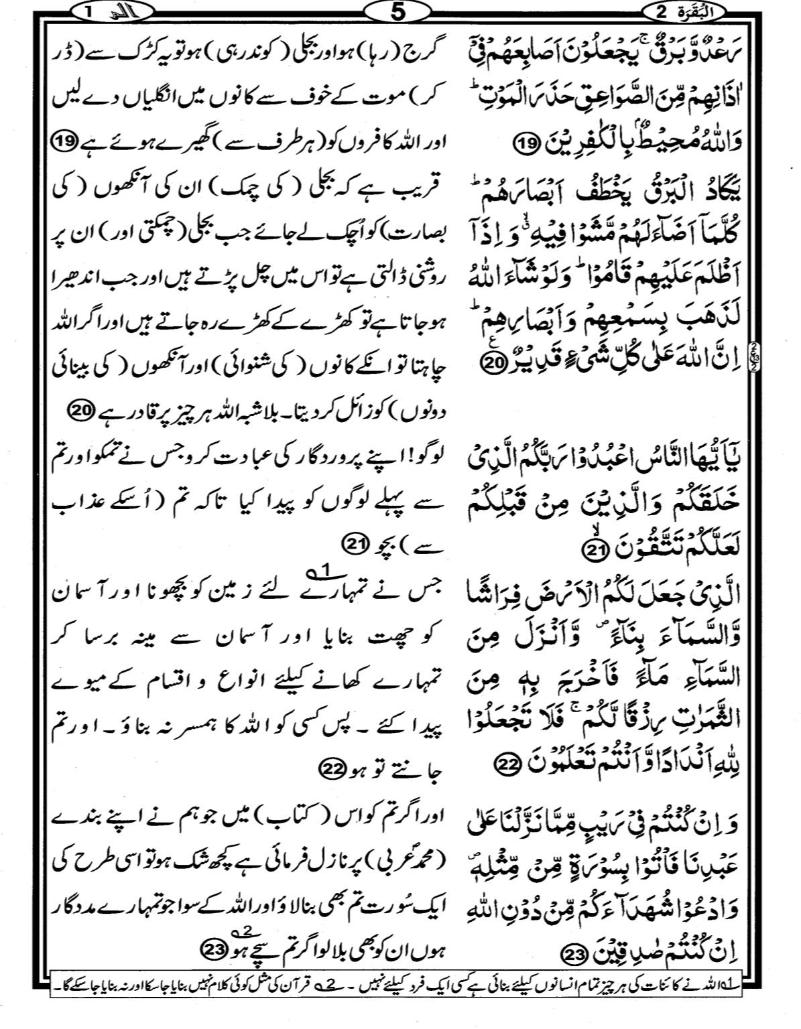 اَلْبَقَرَة 2
5
الٓمّٓ 1
رَعْدٌ وَّبَرْقٌ ۚ يَجْعَلُوْنَ اَصَابِعَهُمْ فِیْۤ
اٰذَانِهِمْ مِّنَ الصَّوَاعِقِ حَذَرَ الْمَوْتِ ؕ
وَاللّٰهُ مُحِيْطٌۢ بِالْكٰفِرِيْنَ ⑲
يَكَادُ الْبَرْقُ يَخْطَفُ اَبْصَارَهُمْ ؕ
كُلَّمَاۤ اَضَآءَ لَهُمْ مَّشَوْا فِيْهِ ۙ وَ اِذَاۤ
اَظْلَمَ عَلَيْهِمْ قَامُوْا ؕ وَلَوْ شَآءَ اللّٰهُ
لَذَهَبَ بِسَمْعِهِمْ وَاَبْصَارِهِمْ ؕ
اِنَّ اللّٰهَ عَلٰى كُلِّ شَیْءٍ قَدِيْرٌ ⑳ ع
يٰۤاَيُّهَا النَّاسُ اعْبُدُوْا رَبَّكُمُ الَّذِیْ
خَلَقَكُمْ وَالَّذِيْنَ مِنْ قَبْلِكُمْ
لَعَلَّكُمْ تَتَّقُوْنَ ۙ ㉑
الَّذِیْ جَعَلَ لَكُمُ الْاَرْضَ فِرَاشًا
وَّالسَّمَآءَ بِنَآءً ۪ وَّاَنْزَلَ مِنَ
السَّمَآءِ مَآءً فَاَخْرَجَ بِهٖ مِنَ
الثَّمَرٰتِ رِزْقًا لَّكُمْ ۚ فَلَا تَجْعَلُوْا
لِلّٰهِ اَنْدَادًا وَّاَنْتُمْ تَعْلَمُوْنَ ㉒
وَ اِنْ كُنْتُمْ فِیْ رَيْبٍ مِّمَّا نَزَّلْنَا عَلٰى
عَبْدِنَا فَاْتُوْا بِسُوْرَةٍ مِّنْ مِّثْلِهٖ ۪
وَادْعُوْا شُهَدَآءَكُمْ مِّنْ دُوْنِ اللّٰهِ
اِنْ كُنْتُمْ صٰدِقِيْنَ ㉓
گرج (رہا) ہو اور بجلی (کوند رہی) ہو تو یہ کڑک سے (ڈر
کر) موت کے خوف سے کانوں میں انگلیاں دے لیں
اور اللہ کافروں کو (ہر طرف سے) گھیرے ہوئے ہے ⑲
قریب ہے کہ بجلی (کی چمک) ان کی آنکھوں (کی
بصارت) کو اُچک لے جائے جب بجلی (چمکتی اور) ان پر
روشنی ڈالتی ہے تو اس میں چل پڑتے ہیں اور جب اندھیرا
ہو جاتا ہے تو کھڑے کے کھڑے رہ جاتے ہیں اور اگر اللہ
چاہتا تو انکے کانوں (کی شنوائی) اور آنکھوں (کی بینائی
دونوں) کو زائل کر دیتا۔ بلاشبہ اللہ ہر چیز پر قادر ہے ⑳
لوگو! اپنے پروردگار کی عبادت کرو جس نے تمکو اور تم
سے پہلے لوگوں کو پیدا کیا تاکہ تم (اُسکے عذاب
سے) بچو ㉑
جس نے تمہارے 1؎ لئے زمین کو بچھونا اور آسمان
کو چھت بنایا اور آسمان سے مینہ برسا کر
تمہارے کھانے کیلئے انواع و اقسام کے میوے
پیدا کئے ۔ پس کسی کو اللہ کا ہمسر نہ بناؤ ۔ اور تم
جانتے تو ہو ㉒
اور اگر تم کو اس (کتاب) میں جو ہم نے اپنے بندے
(محمدؐ عربی) پر نازل فرمائی ہے کچھ شک ہو تو اسی طرح کی
ایک سُورت تم بھی بنا لاؤ اور اللہ کے سوا جو تمہارے مددگار
ہوں ان کو بھی بلا لو اگر تم سچے 2؎ ہو ㉓
1؎ اللہ نے کائنات کی ہر چیز تمام انسانوں کیلئے بنائی ہے کسی ایک فرد کیلئے نہیں ۔ 2؎ قرآن کی مثل کوئی کلام نہیں بنایا جاسکا اور نہ بنایا جاسکے گا ۔